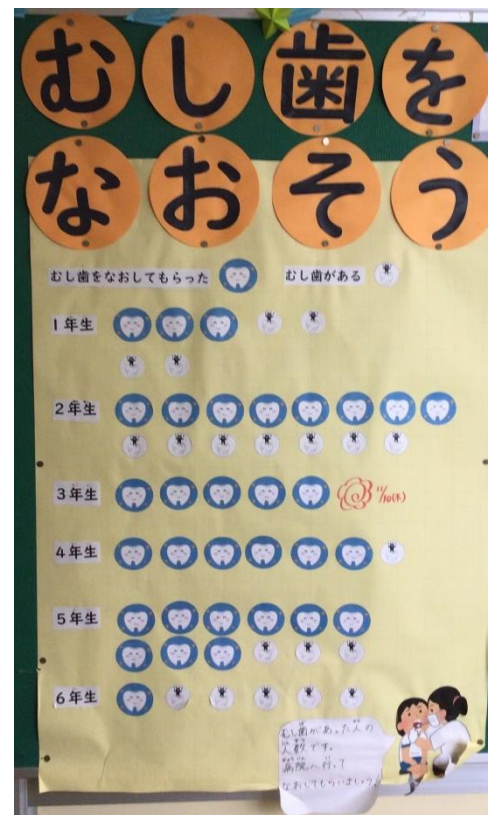 むし歯を
なおそう
むし歯をなおしてもらった むし歯がある
1年生
2年生
3年生 11/10(木)
4年生
5年生
6年生
むし歯があった人の
人数です。
病院へ行って
なおしてもらいましょう。